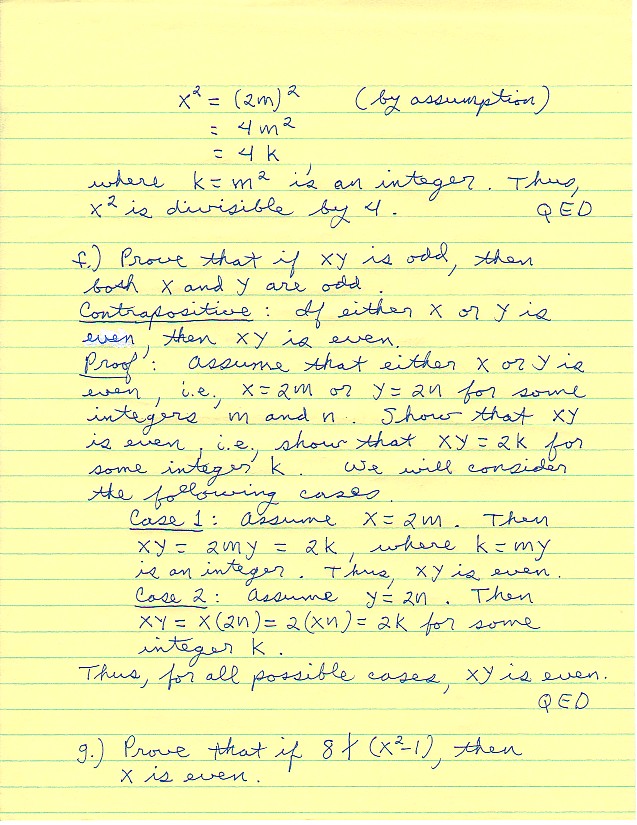 x² = (2m)² (by assumption)
= 4m²
= 4k
where k = m² is an integer. Thus,
x² is divisible by 4. QED
f.) Prove that if xy is odd, then
both x and y are odd.
Contrapositive: If either x or y is
even, then xy is even.
Proof: Assume that either x or y is
even, i.e., x=2m or y=2n for some
integers m and n. Show that xy
is even, i.e., show that xy=2k for
some integer k. We will consider
the following cases.
Case 1: Assume x=2m. Then
xy = 2my = 2k, where k=my
is an integer. Thus, xy is even.
Case 2: Assume y=2n. Then
xy = x(2n) = 2(xn) = 2k for some
integer k.
Thus, for all possible cases, xy is even.
QED
g.) Prove that if 8∤(x²-1), then
x is even.